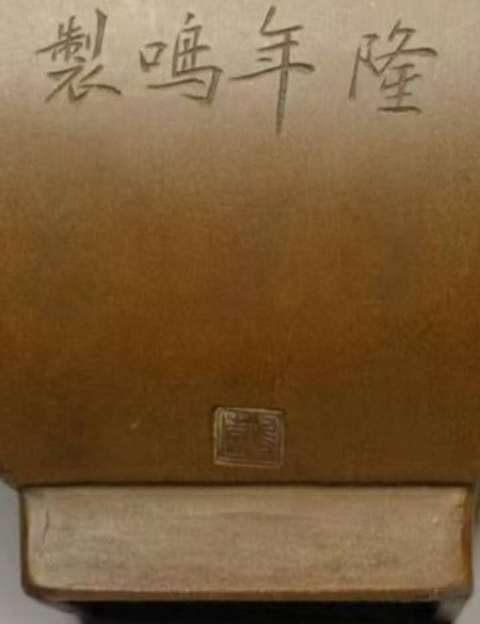 隆年鳴製